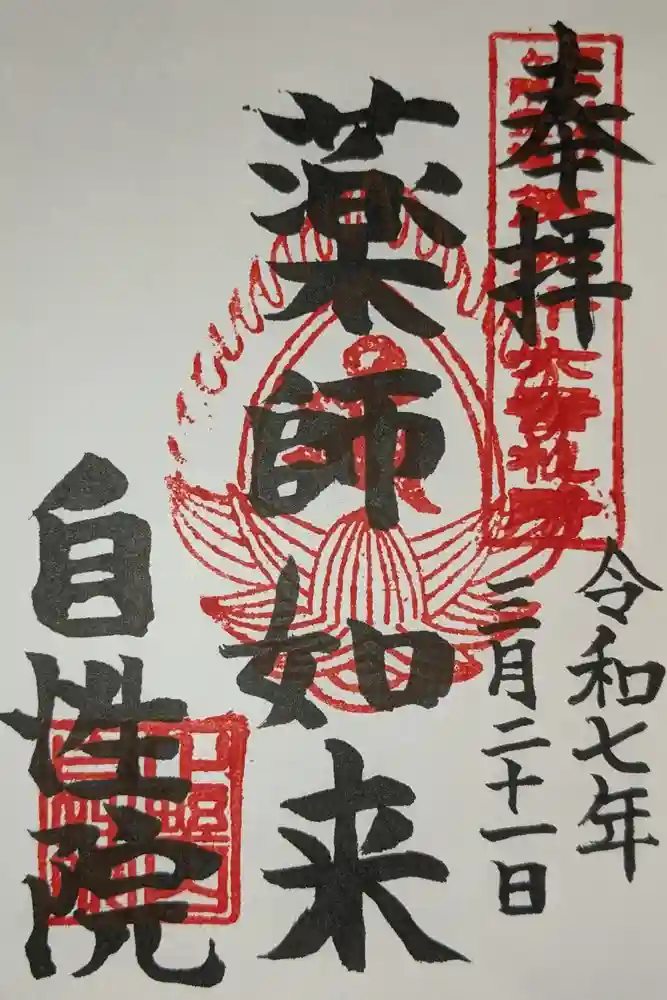 奉拝
令和七年
三月二十一日
薬師如来
自性院